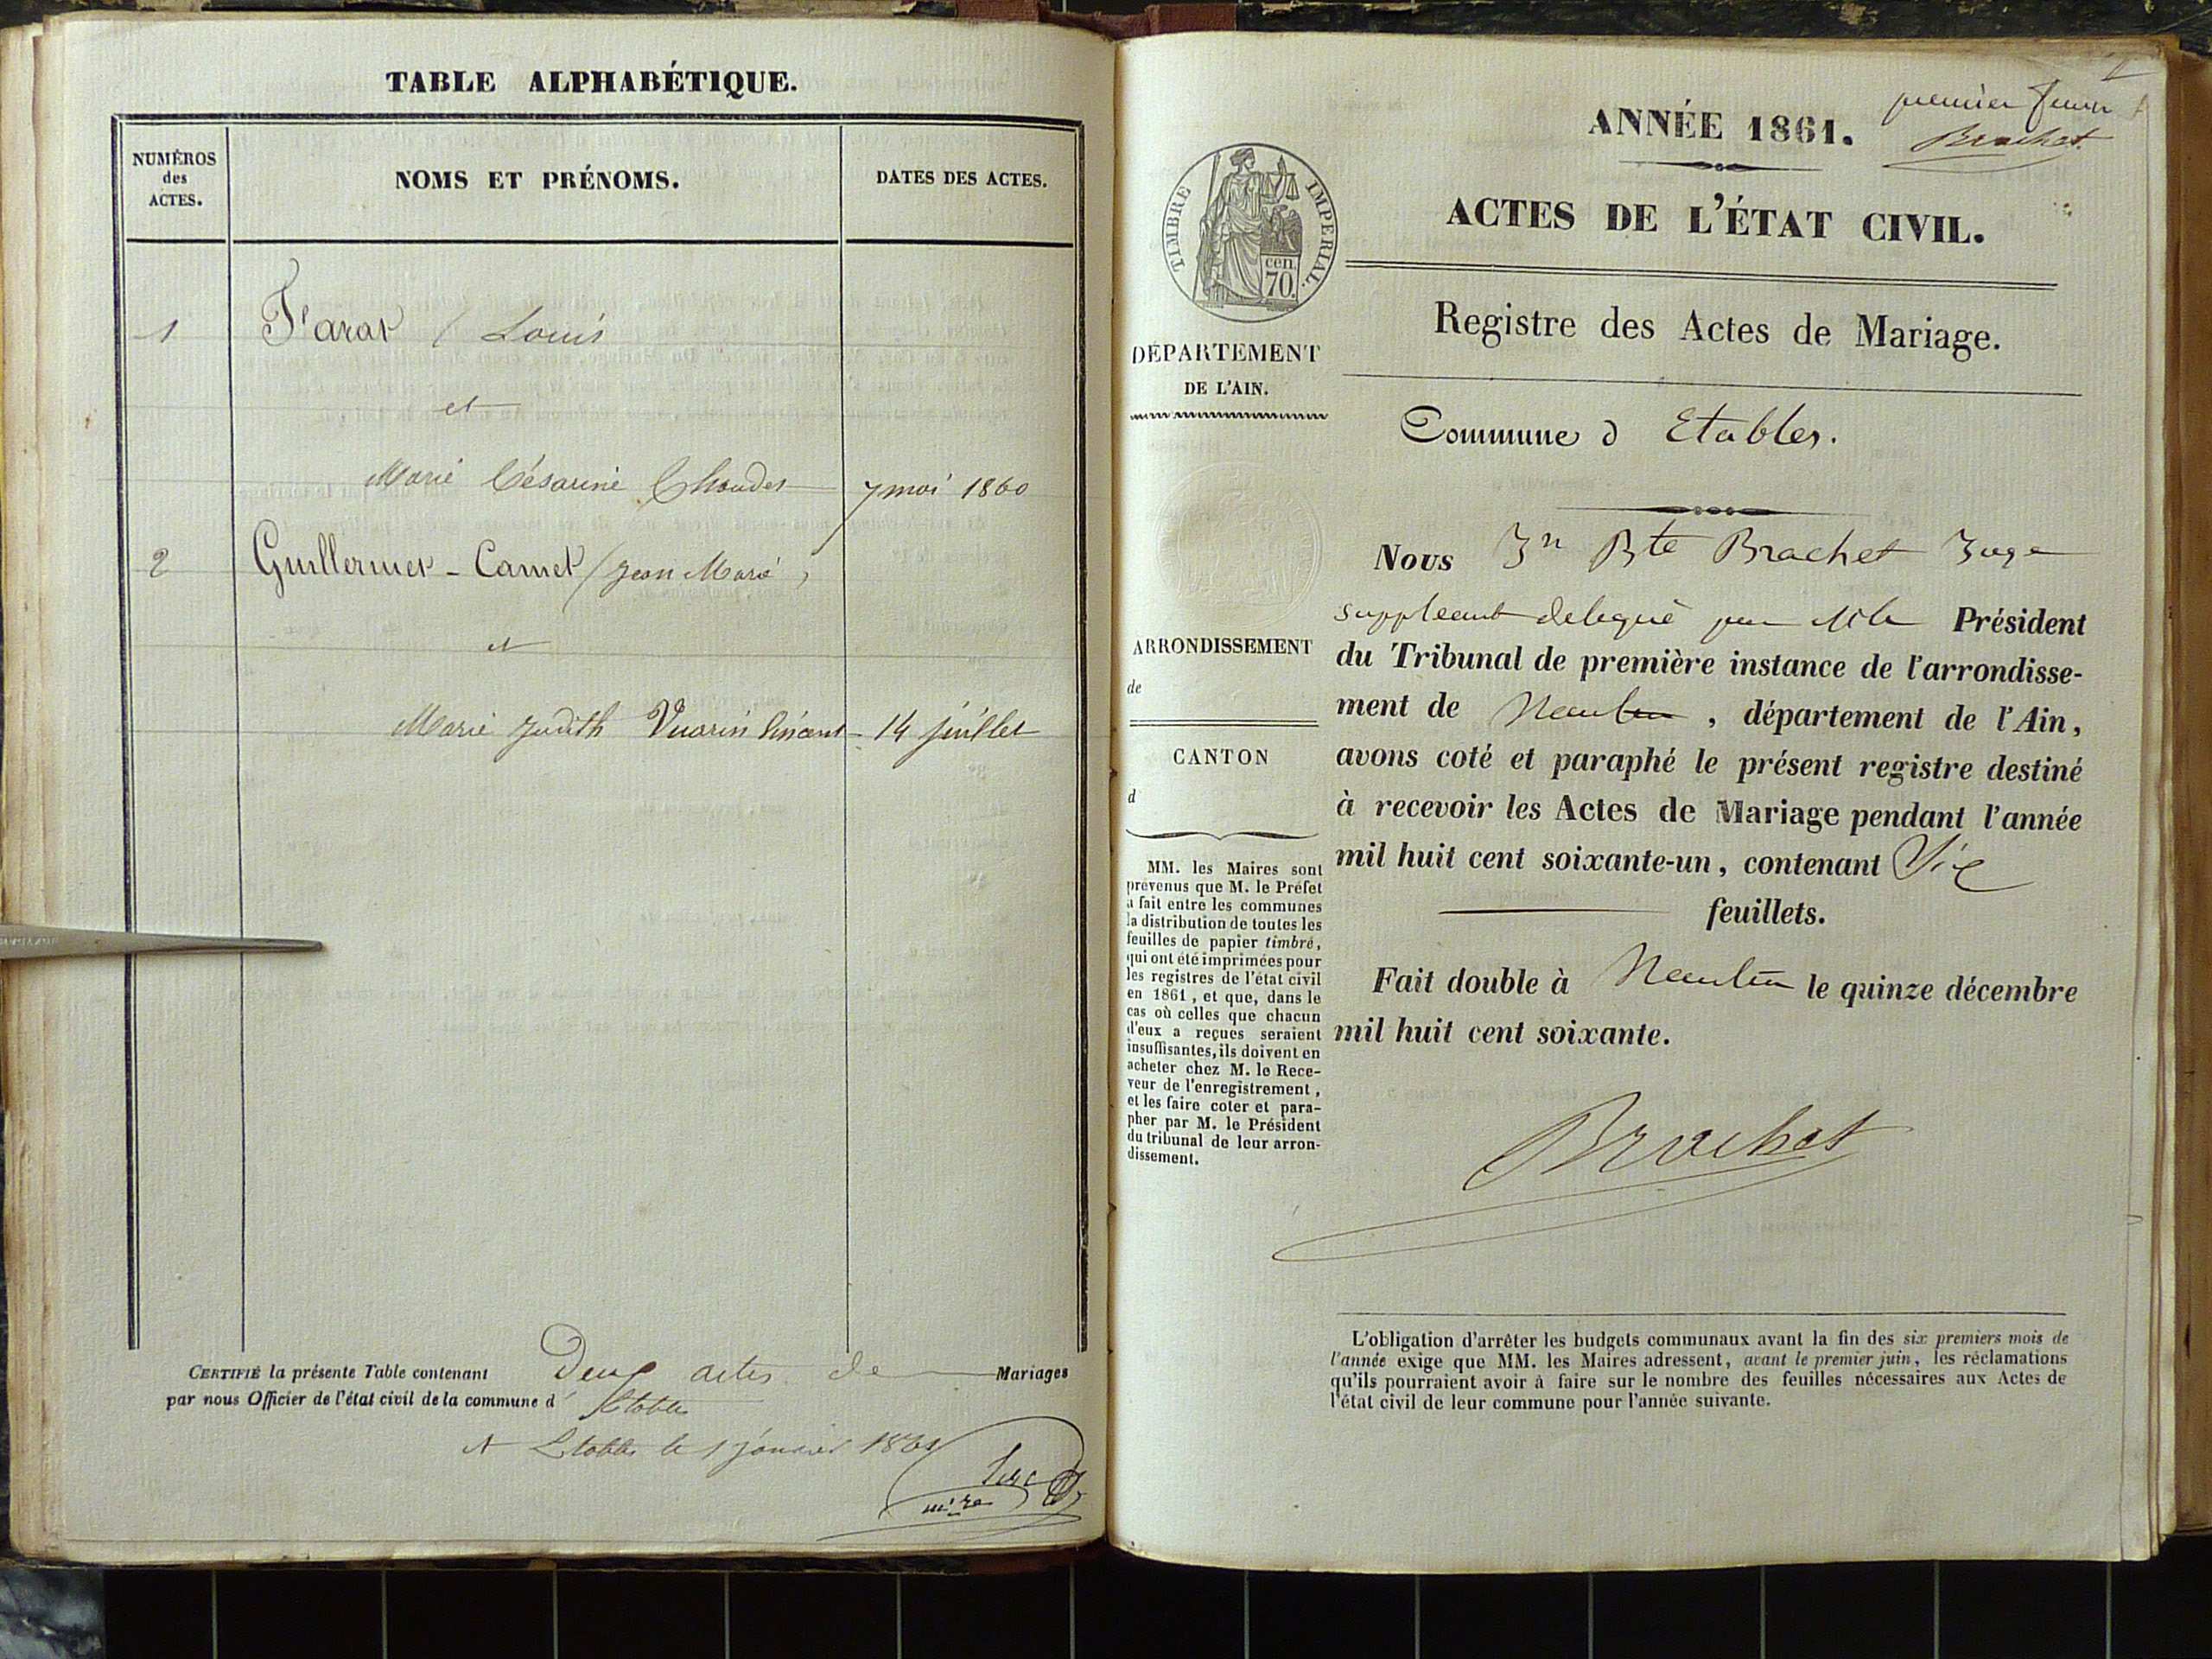 TABLE ALPHABÉTIQUE.
NUMÉROS
des
ACTES.
NOMS ET PRÉNOMS.
DATES DES ACTES.
1 Louis
et
Marie Césarine 7 mai 1860
2 Guillermet - Carnet (Jean Marie)
et
Marie Judith Vuarin Vincent - 14 juillet
CERTIFIÉ la présente Table contenant Deux actes de Mariages
par nous Officier de l'état civil de la commune d' Etables
A Etables le 1 janvier 1861
ANNÉE 1861.
premier
Brachet
ACTES DE L'ÉTAT CIVIL.
TIMBRE IMPERIAL.
cen.
70.
Registre des Actes de Mariage.
DÉPARTEMENT
DE L'AIN.
Commune d Etables.
Nous Jn Bte Brachet Juge
suppléant delegué par Président
du Tribunal de première instance de l'arrondisse-
ment de Nantua, département de l'Ain,
avons coté et paraphé le présent registre destiné
à recevoir les Actes de Mariage pendant l'année
mil huit cent soixante-un, contenant Six
feuillets.
Fait double à Nantua le quinze décembre
mil huit cent soixante.
Brachet
ARRONDISSEMENT
de
CANTON
d
MM. les Maires sont
prévenus que M. le Préfet
a fait entre les communes
la distribution de toutes les
feuilles de papier timbré,
qui ont été imprimées pour
les registres de l'état civil
en 1861, et que, dans le
cas où celles que chacun
d'eux a reçues seraient
insuffisantes, ils doivent en
acheter chez M. le Rece-
veur de l'enregistrement,
et les faire coter et para-
pher par M. le Président
du tribunal de leur arron-
dissement.
L'obligation d'arrêter les budgets communaux avant la fin des six premiers mois de
l'année exige que MM. les Maires adressent, avant le premier juin, les réclamations
qu'ils pourraient avoir à faire sur le nombre des feuilles nécessaires aux Actes de
l'état civil de leur commune pour l'année suivante.